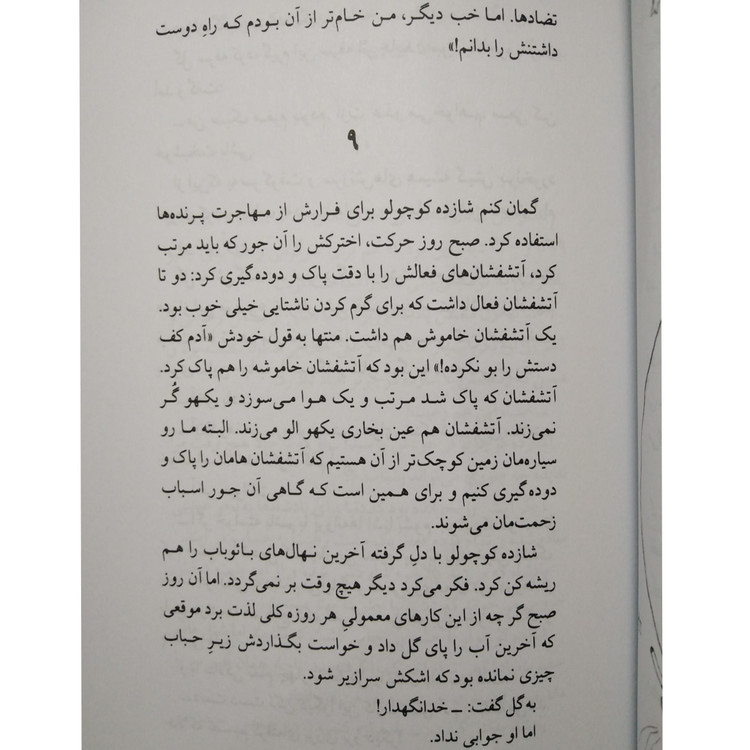 تضادها. اما خب دیگر، من خام‌تر از آن بودم که راهِ دوست
داشتنش را بدانم!»
۹
گمان کنم شازده کوچولو برای فرارش از مهاجرت پرنده‌ها
استفاده کرد. صبح روز حرکت، اخترکش را آن جور که باید مرتب
کرد، آتشفشان‌های فعالش را با دقت پاک و دوده‌گیری کرد: دو تا
آتشفشان فعال داشت که برای گرم کردن ناشتایی خیلی خوب بود.
یک آتشفشان خاموش هم داشت. منتها به قول خودش «آدم کف
دستش را بو نکرده!» این بود که آتشفشان خاموشه را هم پاک کرد.
آتشفشان که پاک شد مرتب و یک هوا می‌سوزد و یکهو گُر
نمی‌زند. آتشفشان هم عین بخاری یکهو الو می‌زند. البته ما رو
سیاره‌مان زمین کوچک‌تر از آن هستیم که آتشفشان هامان را پاک و
دوده‌گیری کنیم و برای همین است که گاهی آن جور اسباب
زحمت‌مان می‌شوند.
شازده کوچولو با دلِ گرفته آخرین نهال‌های بائوباب را هم
ریشه کن کرد. فکر می‌کرد دیگر هیچ وقت بر نمی‌گردد. اما آن روز
صبح گر چه از این کارهای معمولیِ هر روزه کلی لذت برد موقعی
که آخرین آب را پای گل داد و خواست بگذاردش زیرِ حباب
چیزی نمانده بود که اشکش سرازیر شود.
به‌گل گفت: ــ خدانگهدار!
اما او جوابی نداد.